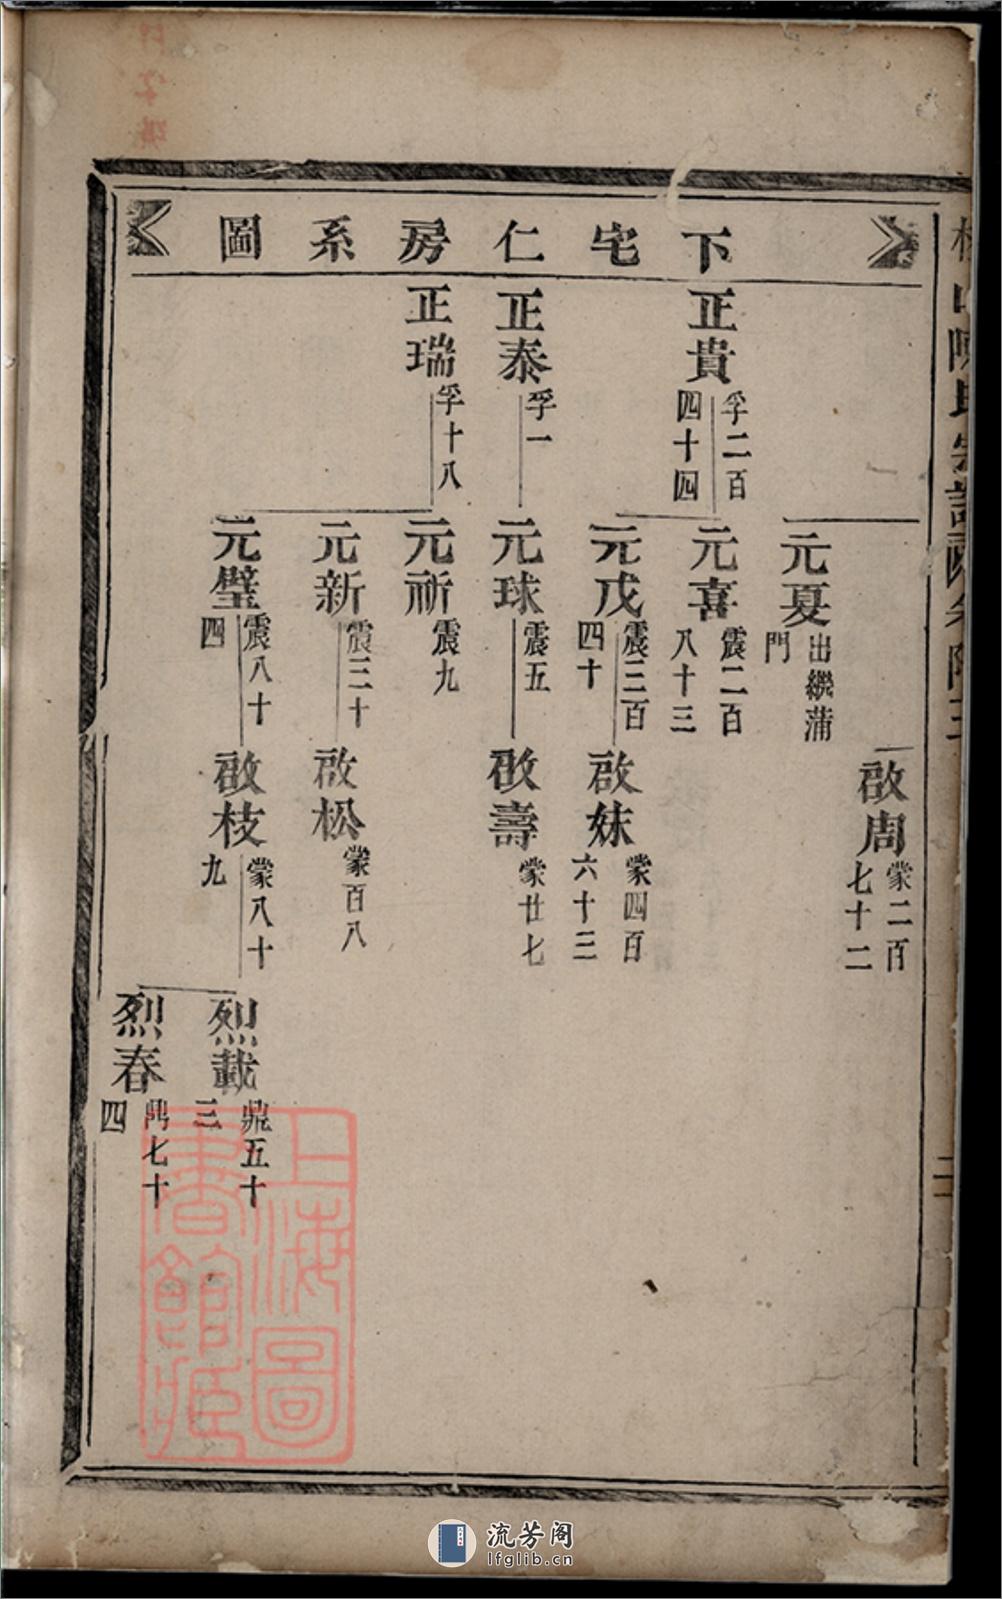 下宅仁房系圖
啟周
蒙二百
七十二
元夏
出繼蒲
門
正貴
孚二百
四十四
元喜
震二百
八十三
元戊
震三百
四十
啟妹
蒙四百
六十三
正泰
孚一
元球
震五
啟壽
蒙廿七
正瑞
孚十八
元祈
震九
元新
震三十
啟松
蒙百八
元璧
震八十
四
啟枝
蒙八十
九
烈載
鼎五十
三
烈春
鼎七十
四
上海圖
書館藏
流芳阁
lfglib.cn